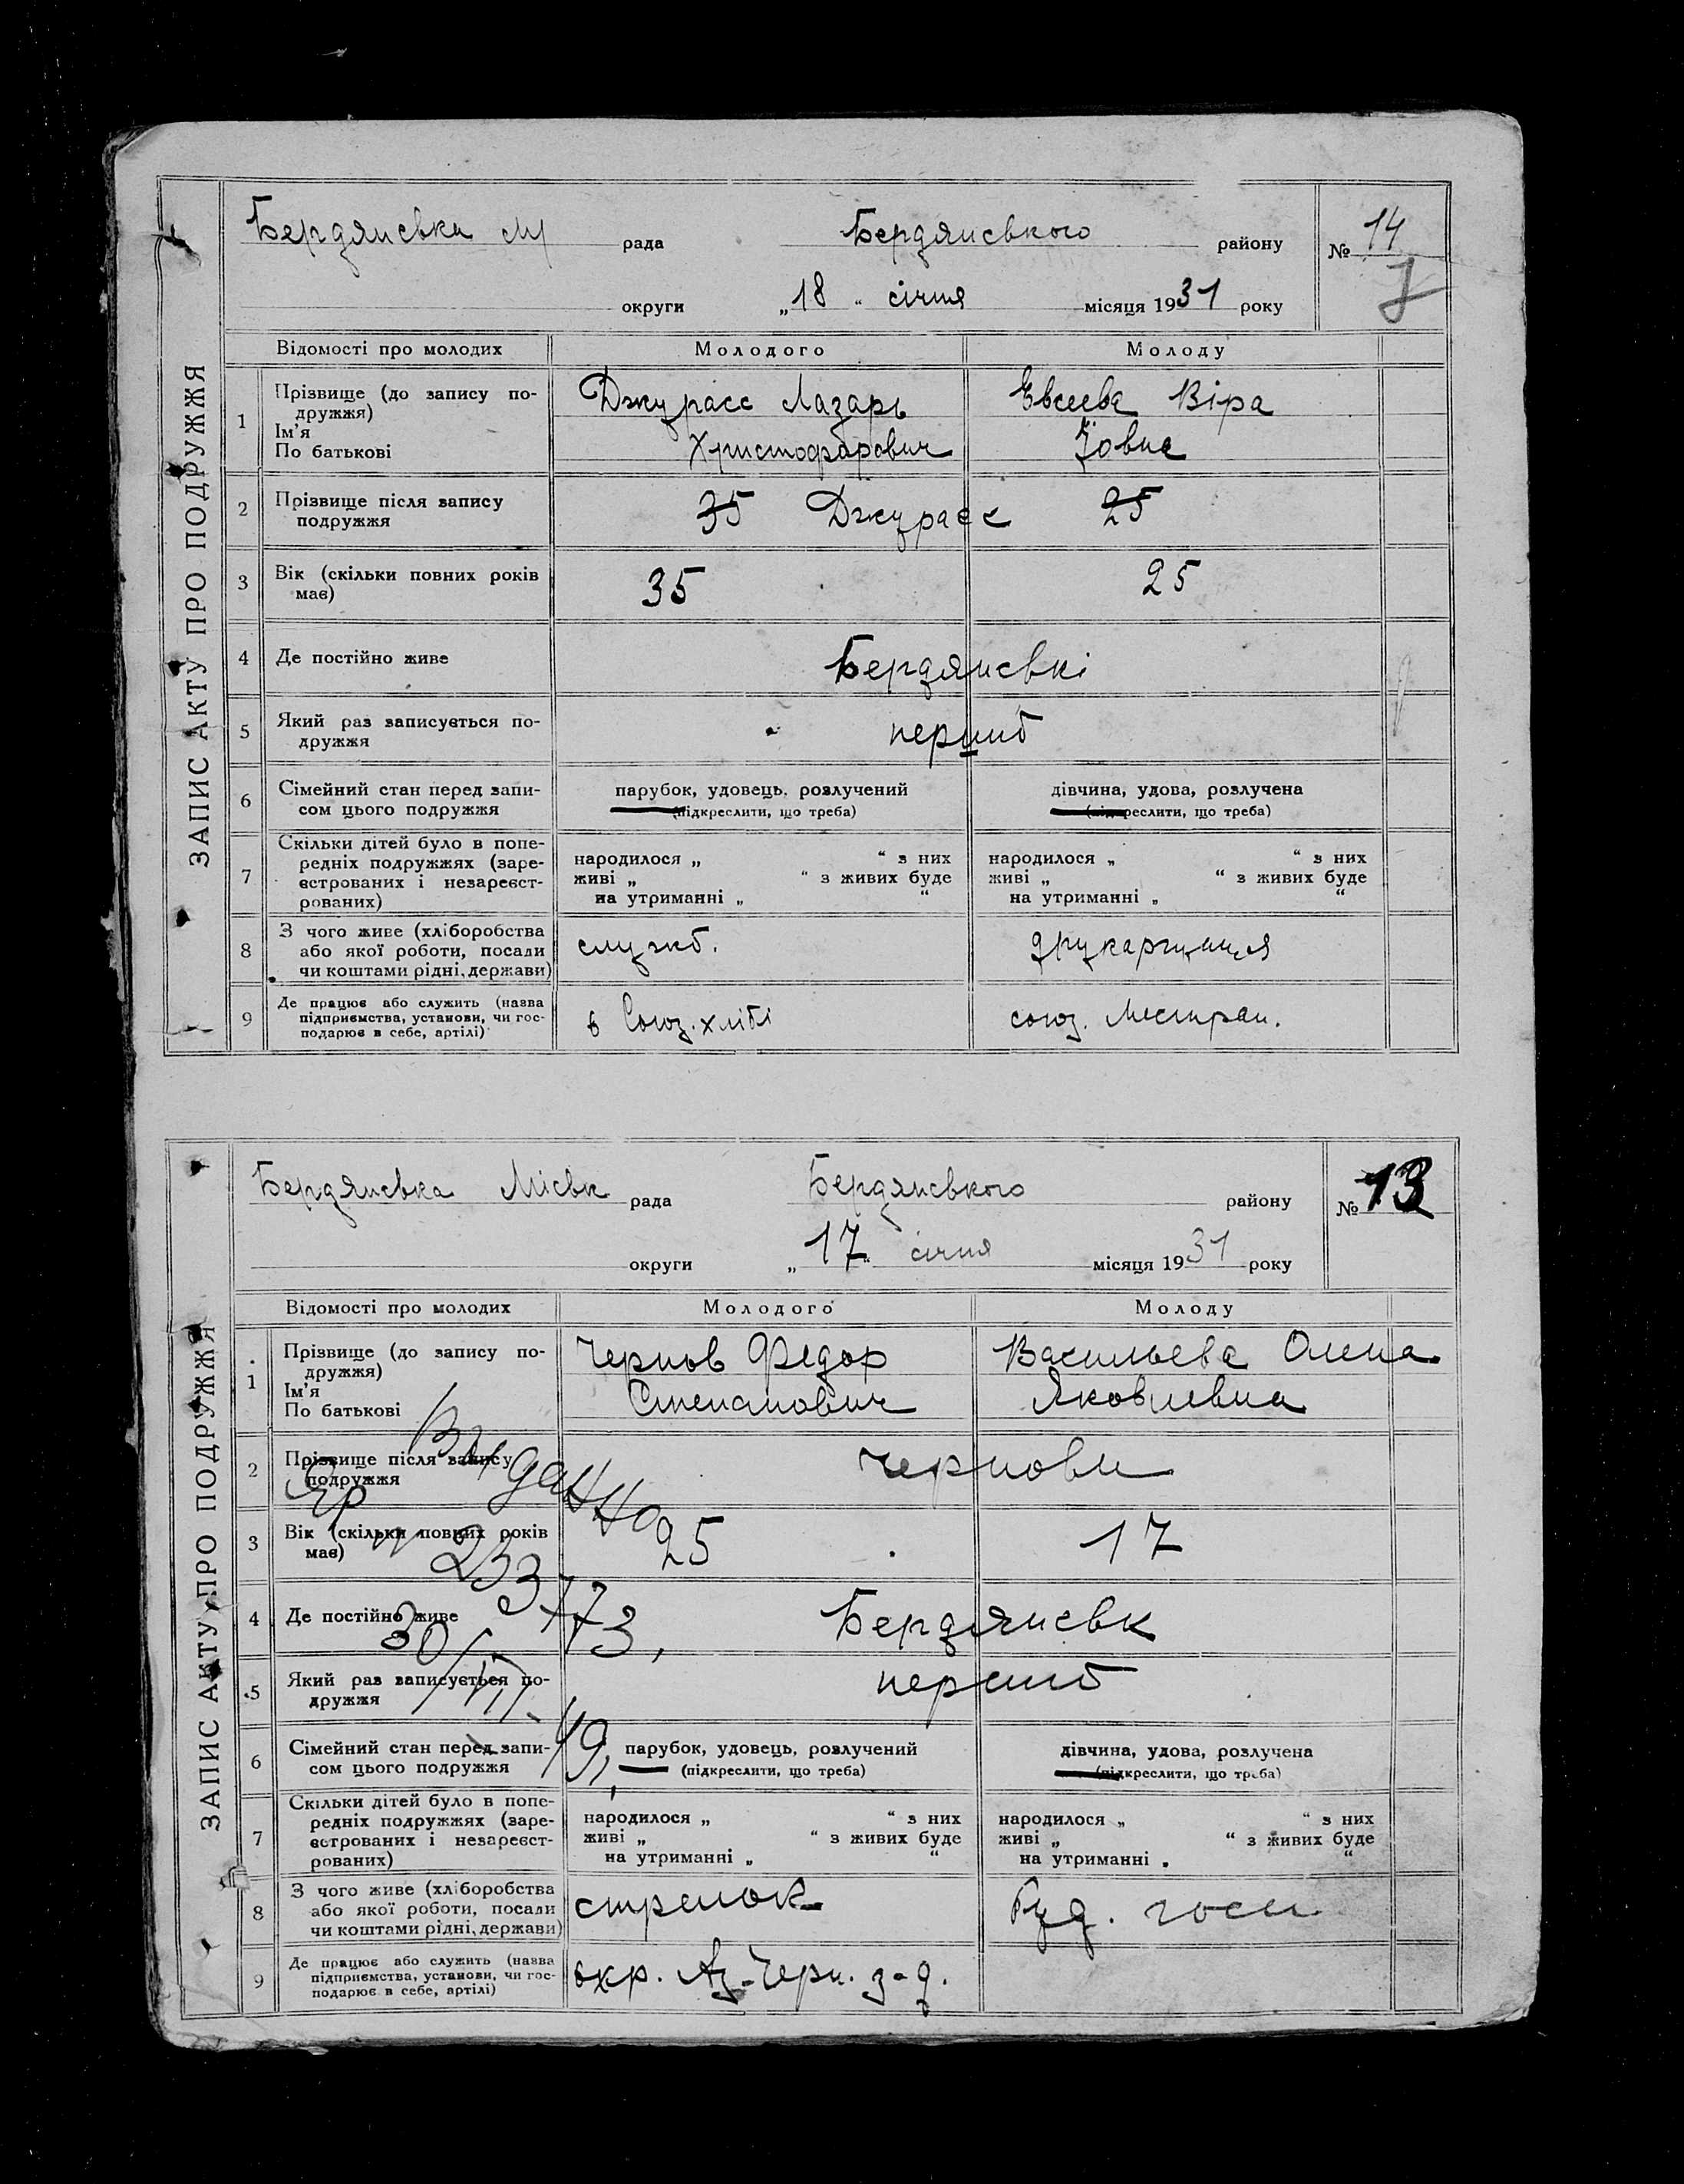 ЗАПИС АКТУ ПРО ПОДРУЖЖЯ
Бердянська М рада Бердянського району № 14
округи „18“ січня місяця 1931 року
Відомості про молодих Молодого Молоду
1 Прізвище (до запису по- Джурасс Лазарь Евсеева Віра
дружжя)
Ім'я
По батькові Христофорович Йовна
2 Прізвище після запису 35 Джурасс 25
подружжя
3 Вік (скільки повних років 35 25
має)
4 Де постійно живе Бердянські
5 Який раз записується по- перший
дружжя
6 Сімейний стан перед запи- парубок, удовець, розлучений дівчина, удова, розлучена
сом цього подружжя (підкреслити, що треба) (підкреслити, що треба)
7 Скільки дітей було в попе-
редніх подружжях (заре- народилося „ “ з них народилося „ “ з них
єстрованих і незареєст- живі „ “ з живих буде живі „ “ з живих буде
рованих) на утриманні „ “ на утриманні „ “
8 З чого живе (хліборобства служб.
або якої роботи, посади
чи коштами рідні, держави)
9 Де працює або служить (назва в Союз.хлібі союз.
підприємства, установи, чи гос-
подарює в себе, артілі)
ЗАПИС АКТУ ПРО ПОДРУЖЖЯ
Бердянська Міськ рада Бердянського району № 13
округи „17“ січня місяця 1931 року
Відомості про молодих Молодого Молоду
1 Прізвище (до запису по- Чернов Федор Васильева Олена
дружжя)
Ім'я
По батькові Степанович Яковлевна
2 Прізвище після запису Чернови
подружжя
Выданно
3 Вік (скільки повних років 25 17
має)
4 Де постійно живе Бердянськ
5 Який раз записується по- перший
дружжя
6 Сімейний стан перед запи- парубок, удовець, розлучений дівчина, удова, розлучена
сом цього подружжя (підкреслити, що треба) (підкреслити, що треба)
7 Скільки дітей було в попе-
редніх подружжях (заре- народилося „ “ з них народилося „ “ з них
єстрованих і незареєст- живі „ “ з живих буде живі „ “ з живих буде
рованих) на утриманні „ “ на утриманні „ “
8 З чого живе (хліборобства стрелок
або якої роботи, посади
чи коштами рідні, держави)
9 Де працює або служить (назва охр. Аз-Черн. з-д.
підприємства, установи, чи гос-
подарює в себе, артілі)